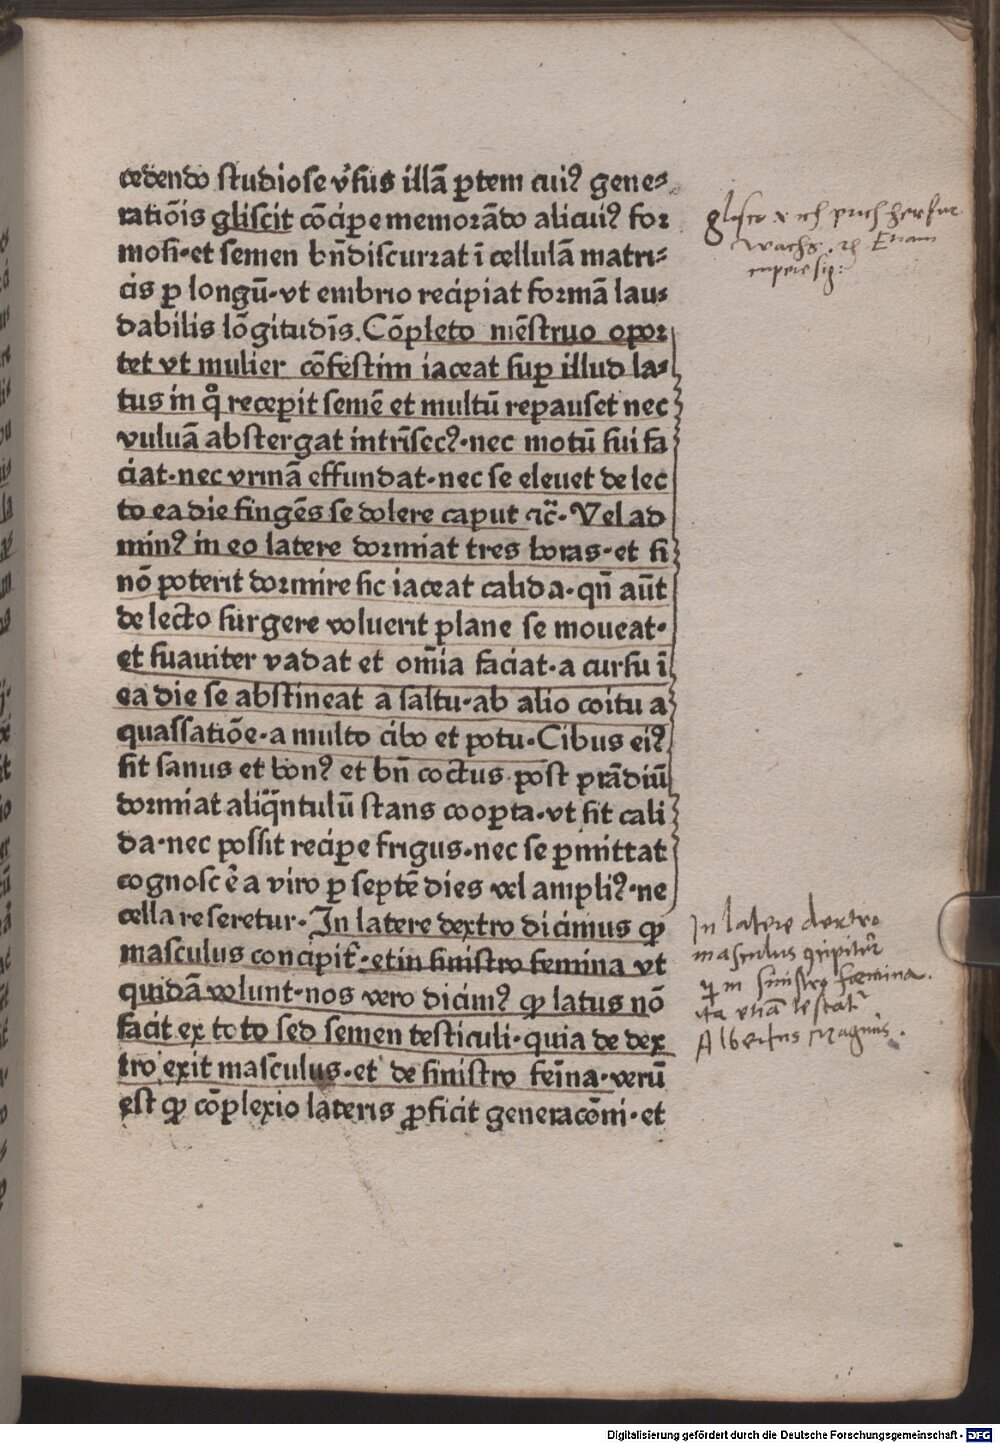 cedendo studiose v̓sus illā ꝑtem cuiꝰ gene-
ratiōis gliscit cōcipe memorādo alicuiꝰ for
mosi·et semen bn̄discurrat ī cellulā matri-
cis ꝑ longū·vt embrio recipiat formā lau-
dabilis lōgitudīs. Cōpleto mēstruo opor
tet vt mulier cōfestim iaceat suꝑ illud la-
tus in qͦ recepit semē et multū repauset nec
vuluā abstergat intrīsecꝰ·nec motū sui fa
ciat·nec vrinā effundat·nec se eleuet de lec
to ea die fingēs se dolere caput ⁊c̄· Vel ad
minꝰ in eo latere dormiat tres horas·et si
nō poterit dormire sic iaceat calida·qn̄ aūt
de lecto surgere voluerit plane se moueat·
et suauiter vadat et om̄ia faciat·a cursu ī
ea die se abstineat a saltu·ab alio coitu a
quassatiōe·a multo cibo et potu·Cibus eiꝰ
sit sanus et bonꝰ et bn̄ coctus post prādiū
dormiat aliq̄ntulū stans cooꝑta·vt sit cali
da·nec possit reciꝑe frigus·nec se ꝑmittat
cognoscē a viro ꝑ septē dies vel ampliꝰ·ne
cella reseretur· In latere dextro dicimus ꝙ
masculus concipit̄·et in sinistro femina vt
quidā volunt·nos vero dicimꝰ ꝙ latus nō
facit ex toto sed semen testiculi·quia de dex
tro exit masculus·et de sinistro femīna·verū
est ꝙ cōplexio lateris ꝓficit generacōni·et
glisco
wachs
Etiam
In latere dextro
masculus
in sinistro fœmina.
ita etiā testat̄
Albertus Magnus.
Digitalisierung gefördert durch die Deutsche Forschungsgemeinschaft - DFG